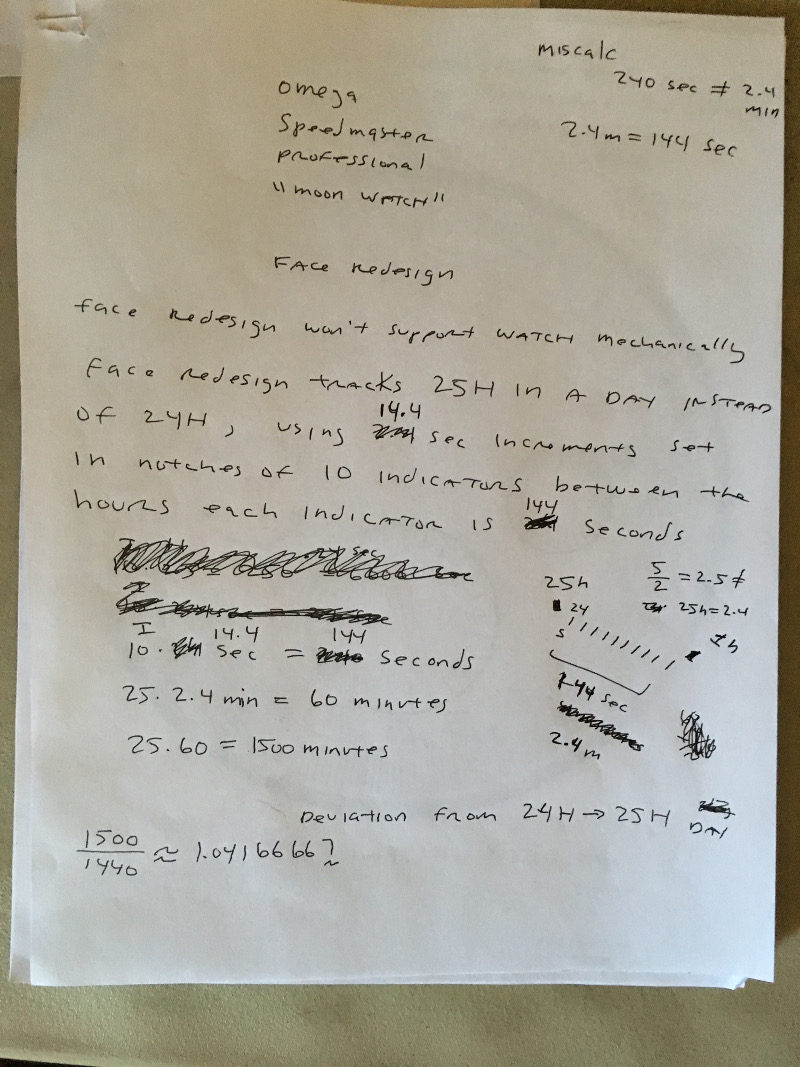 miscalc
240 sec ≠ 2.4 min
2.4m = 144 sec
Omega
Speedmaster
Professional
"moon WATCH"
FACE Redesign
face Redesign won't support WATCH mechanically
Face Redesign tracks 25H in A DAY INSTEAD
OF 24H, using 14.4 sec increments set
in notches of 10 indicators between the
hours each indicator is 144 seconds
I
10 · 14.4 sec = 144 seconds
25 · 2.4 min = 60 minutes
25 · 60 = 1500 minutes
25h
5/2 = 2.5 ≠
24
25h = 2.4
S
1h
144 sec
2.4m
Deviation from 24H → 25H DAY
1500/1440 ≈ 1.04166667